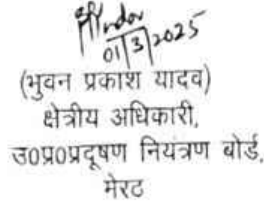 01/3/2025
(भुवन प्रकाश यादव)
क्षेत्रीय अधिकारी,
उ०प्र०प्रदूषण नियंत्रण बोर्ड,
मेरठ